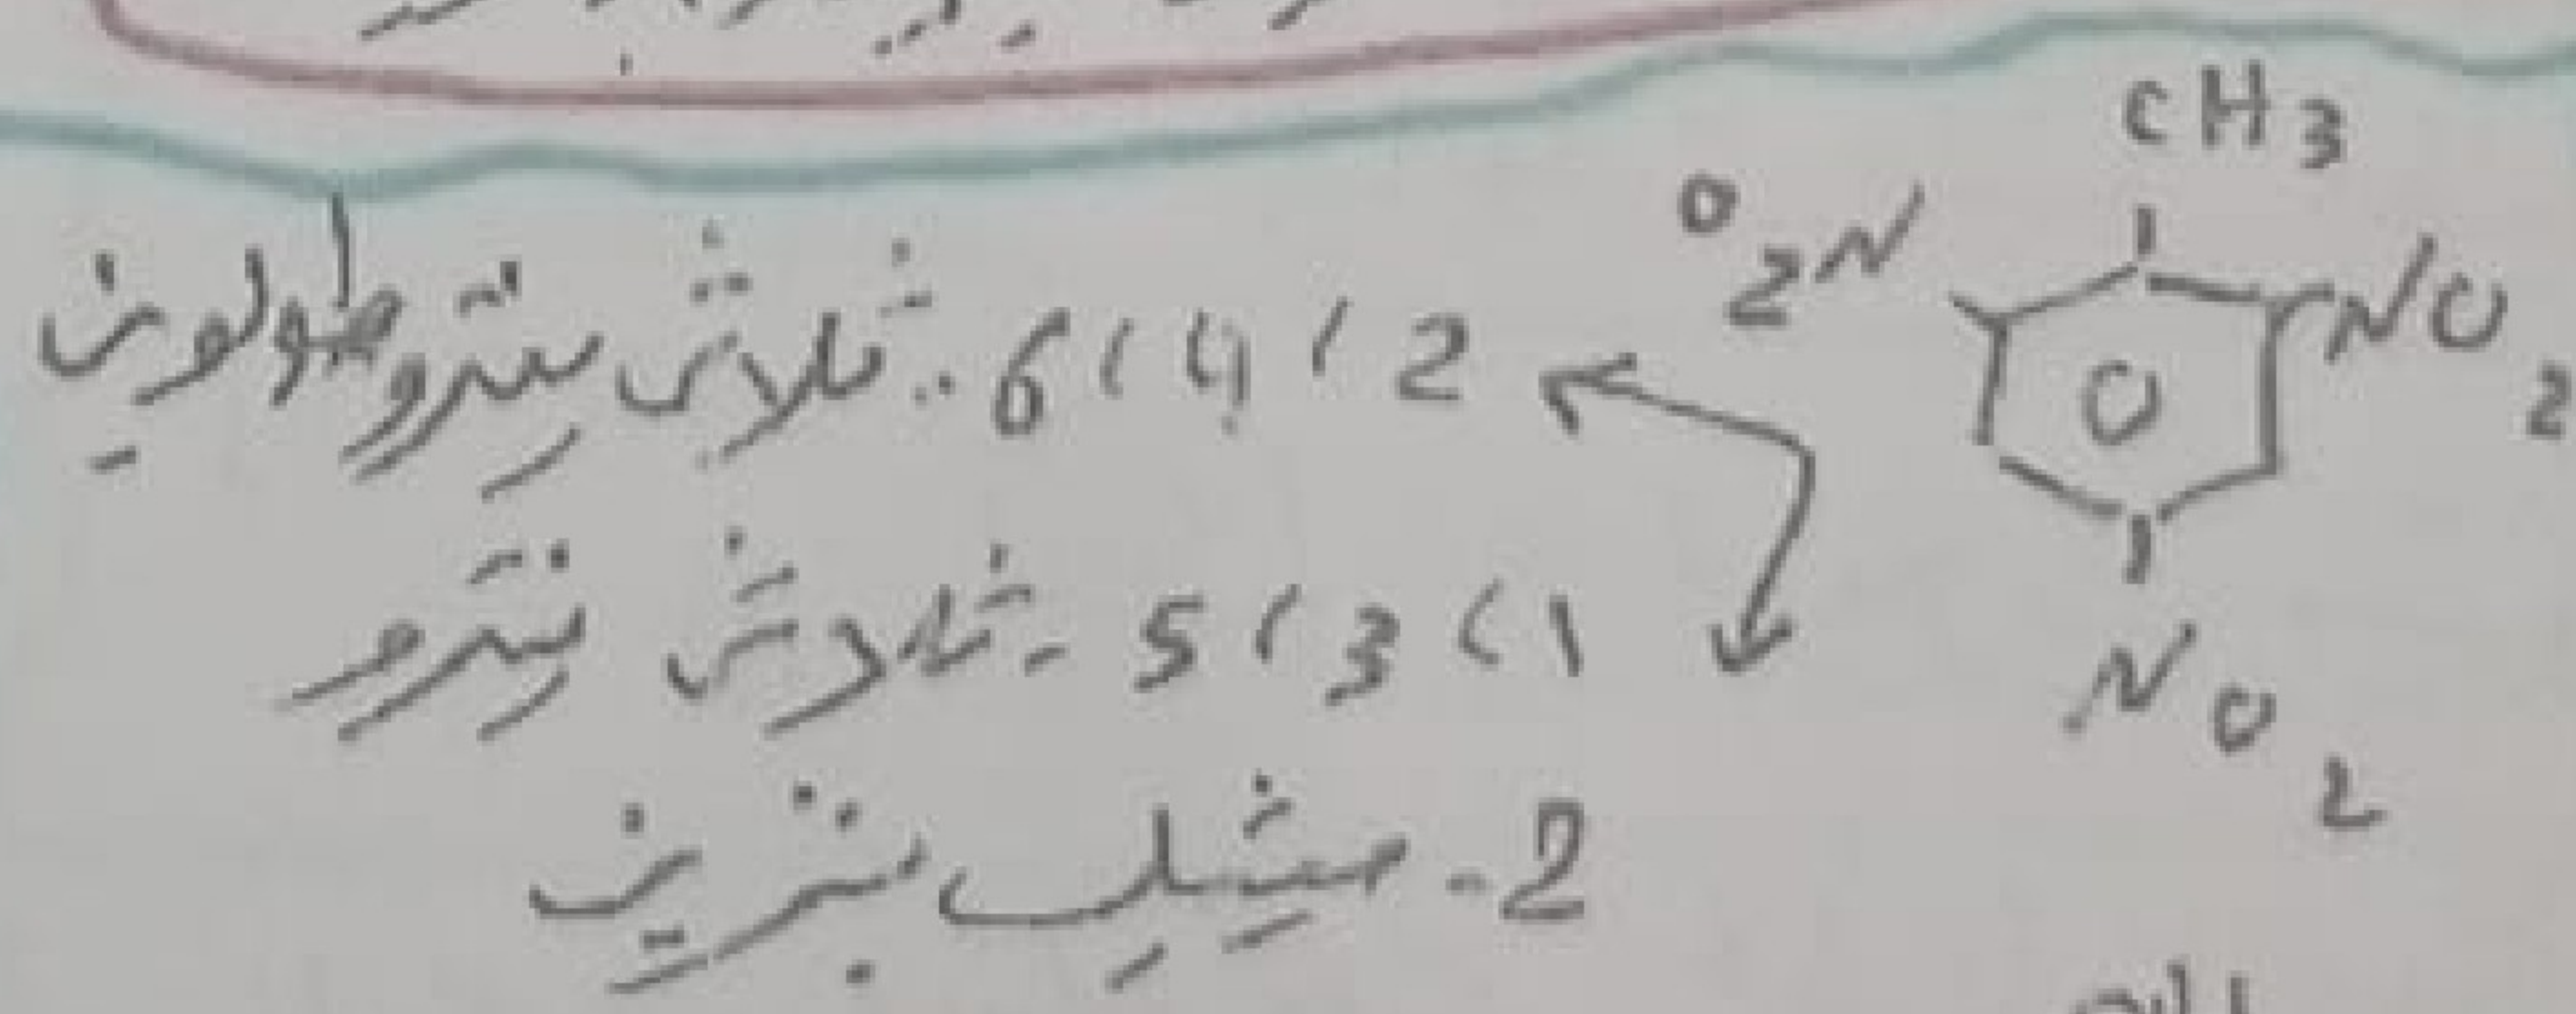 CH3
O2N
NO2
2 ، 4 ، 6 .. ثلاثي نيترو طولوين
1 ، 3 ، 5 - ثلاثي نيترو
NO2
2 - ميثيل بنزين